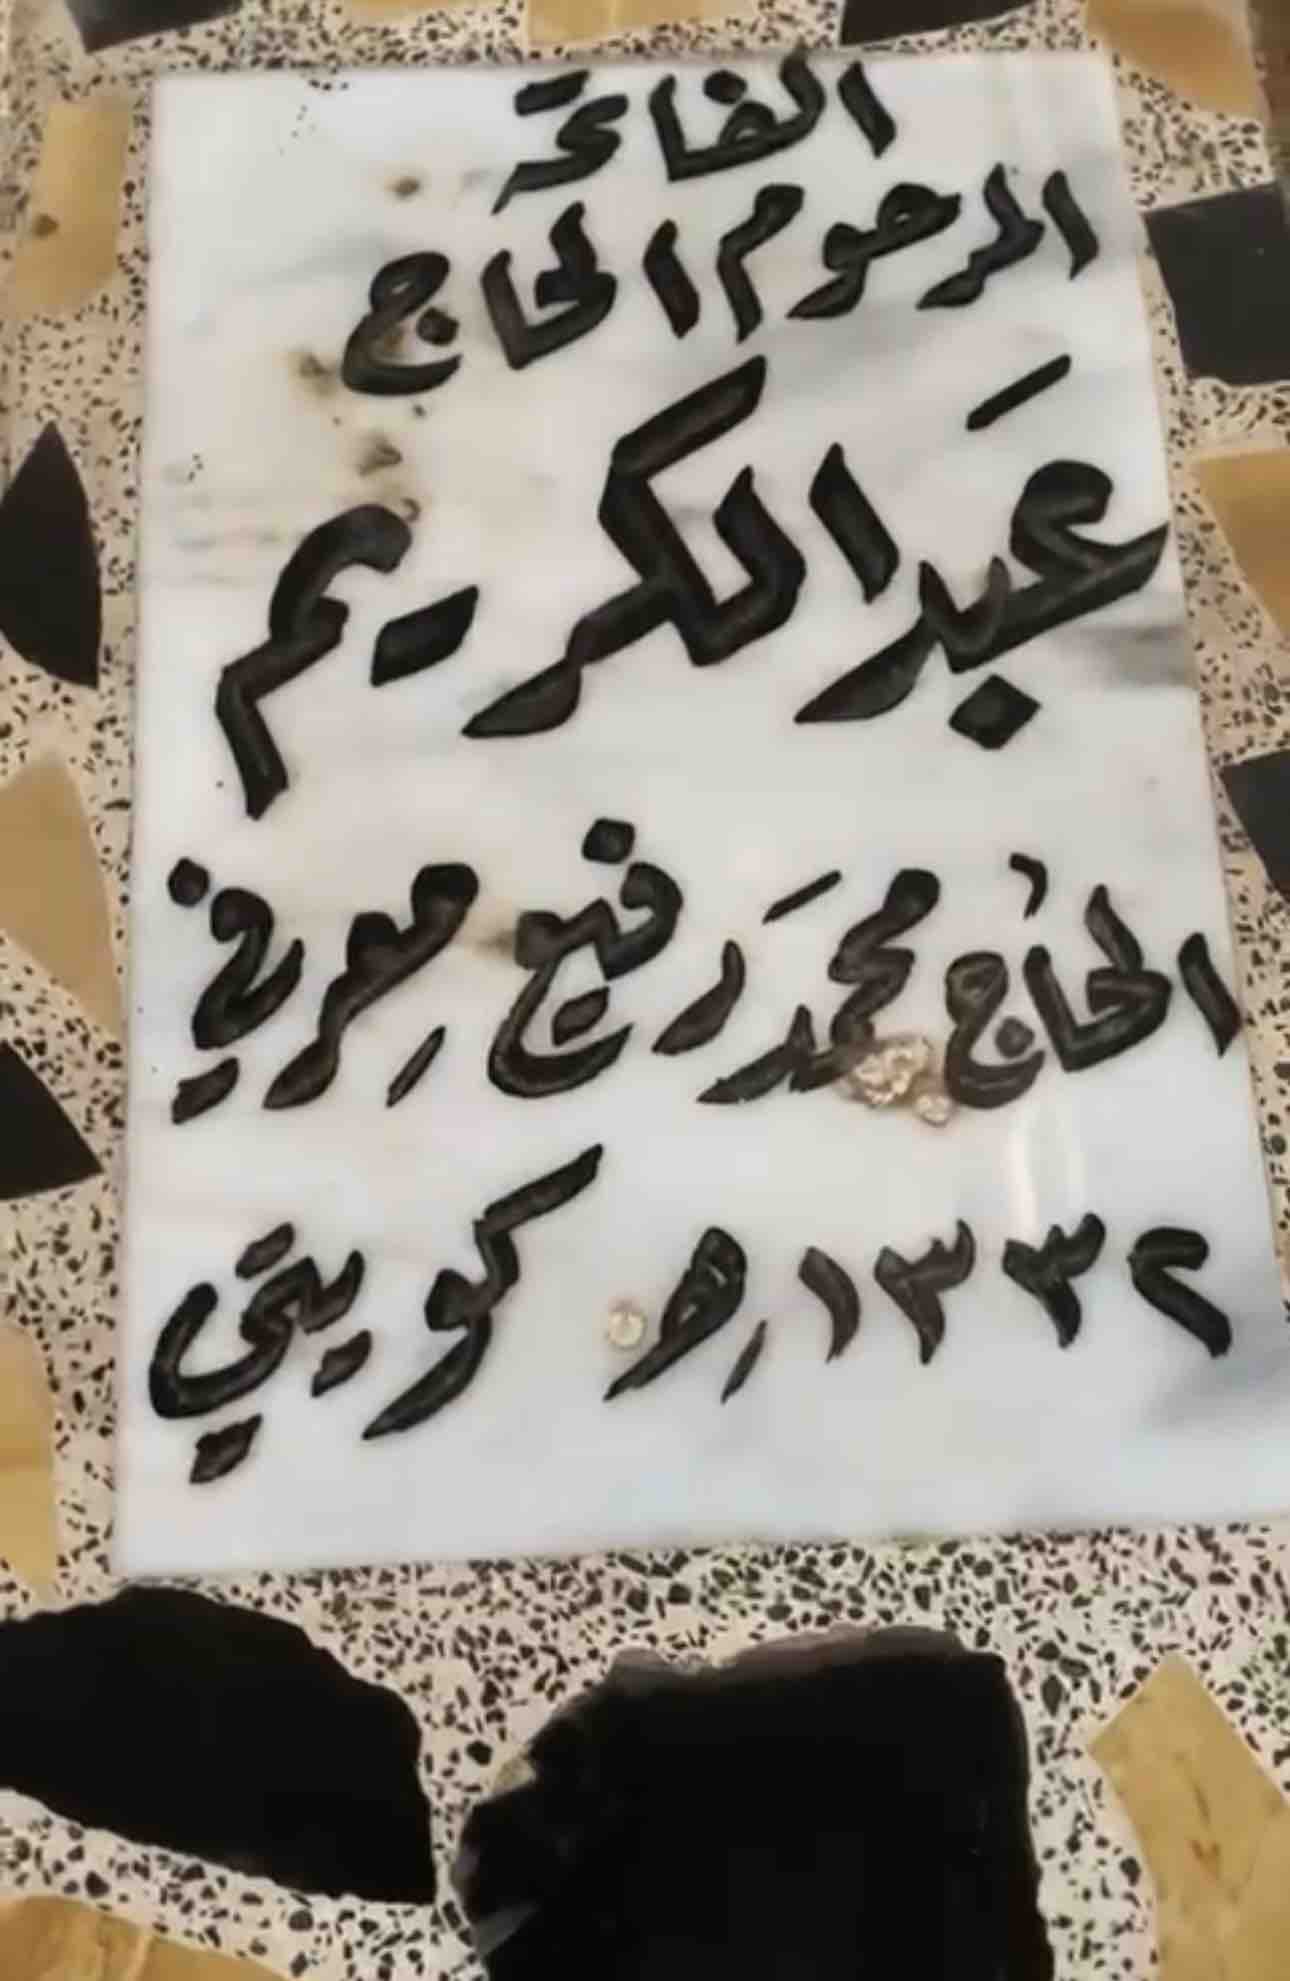 الفاتحة
المرحوم الحاج
عَبدالكريم
الحاج محمدَ رفيع مِعرفي
١٣٣٢هـ كويتي